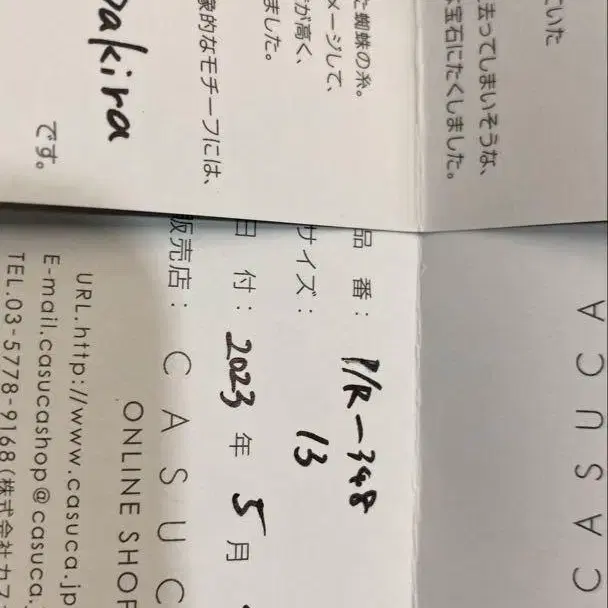 ていた
去ってしまいそうな、
宝石にたくしました。
蜘蛛の糸。
メージして、
が高く、
ました。
象的なモチーフには、
akira
です。
CASUCA
品 番： P/R-348
サイズ： 13
日 付： 2023 年 5 月
販売店： CASUC
ONLINE SHOP
URL.http://www.casuca.jp
E-mail.casucashop@casuca.
TEL.03-5778-9168(株式会社カス